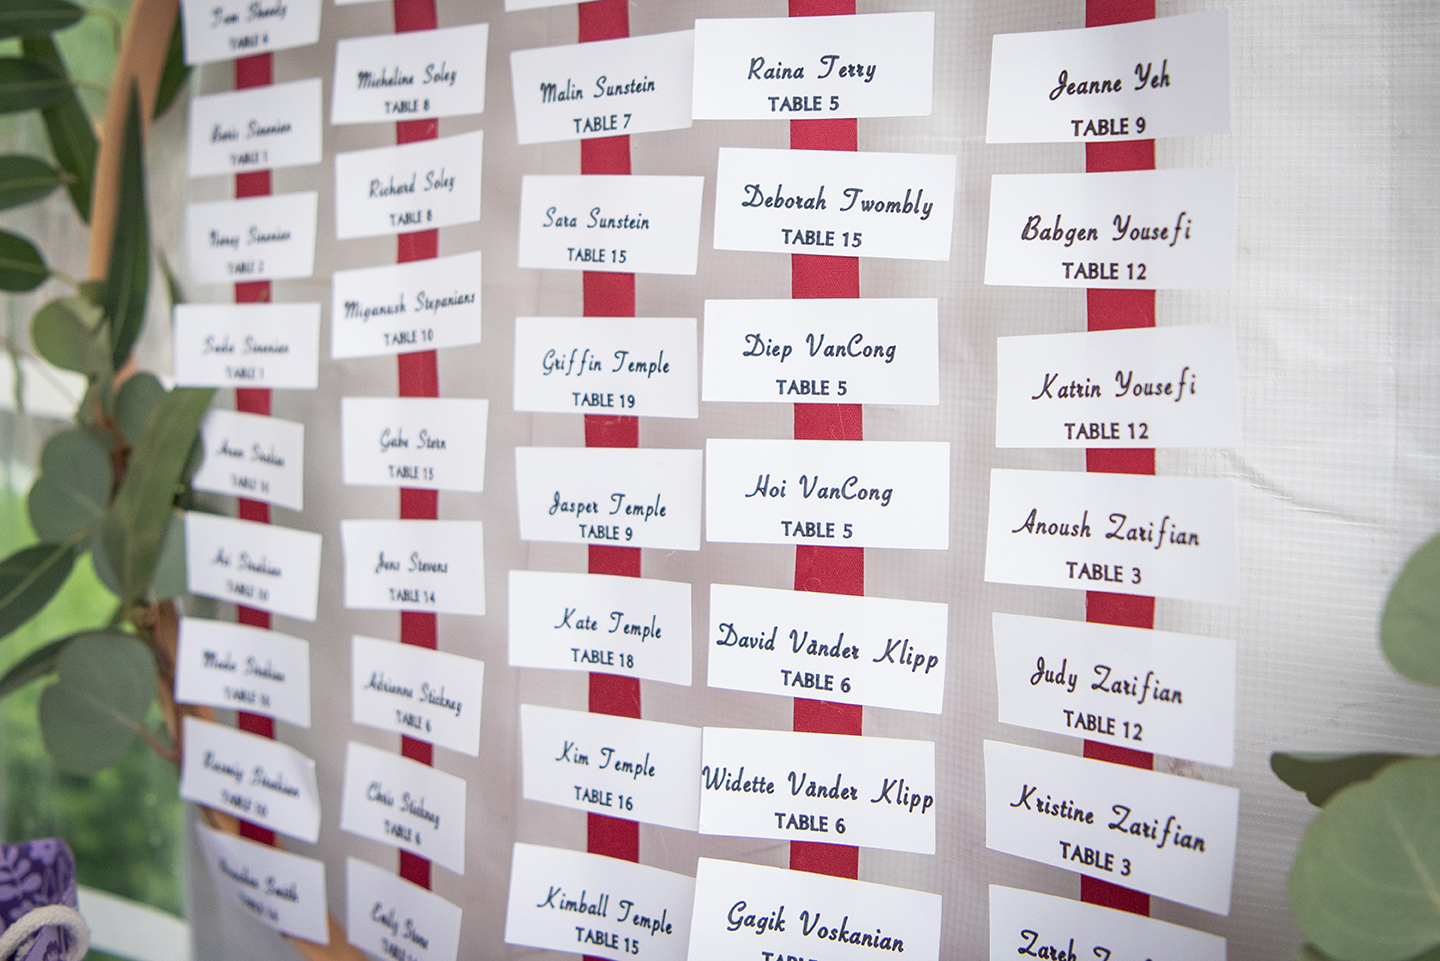 Tom Shandy
TABLE 4
Sinanian
TABLE 1
Sinanian
TABLE 2
Sinanian
TABLE 1
TABLE
TABLE
TABLE
TABLE
Smith
Micheline Soley
TABLE 8
Richard Soley
TABLE 8
Miganush Stepanians
TABLE 10
Gabe Stern
TABLE 15
Jens Stevens
TABLE 14
Adrienne Stickney
TABLE 6
Chris Stickney
TABLE 6
Emily Stone
Malin Sunstein
TABLE 7
Sara Sunstein
TABLE 15
Griffin Temple
TABLE 19
Jasper Temple
TABLE 9
Kate Temple
TABLE 18
Kim Temple
TABLE 16
Kimball Temple
TABLE 15
Raina Terry
TABLE 5
Deborah Twombly
TABLE 15
Diep VanCong
TABLE 5
Hoi VanCong
TABLE 5
David Vander Klipp
TABLE 6
Widette Vander Klipp
TABLE 6
Gagik Voskanian
Jeanne Yeh
TABLE 9
Babgen Yousefi
TABLE 12
Katrin Yousefi
TABLE 12
Anoush Zarifian
TABLE 3
Judy Zarifian
TABLE 12
Kristine Zarifian
TABLE 3
Zareh